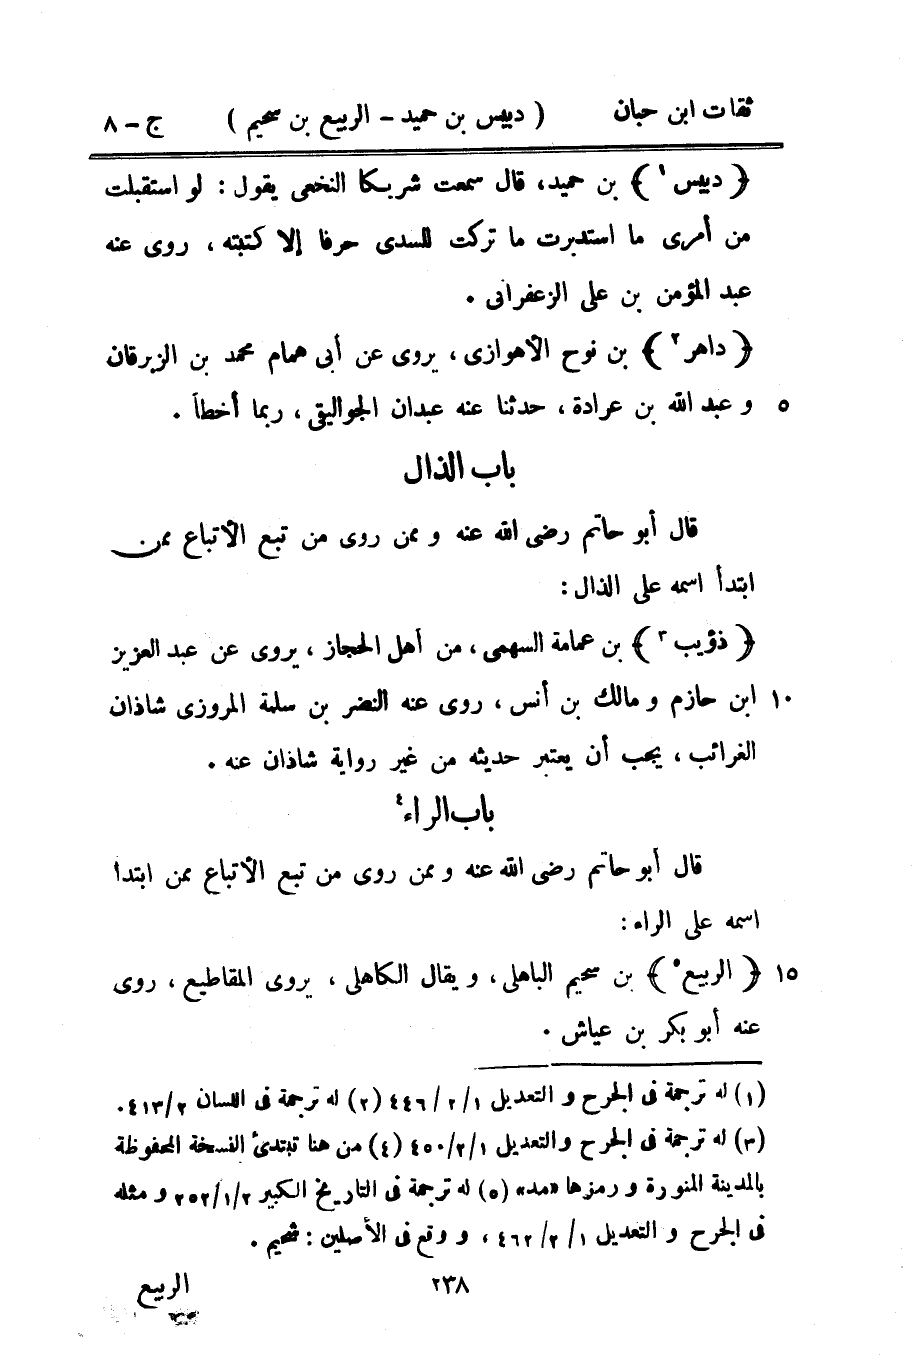 ثقات ابن حبان ( دبيس بن حميد - الربيع بن سحيم ) ج - ٨
﴿ دبيس ١ ﴾ بن حميد، قال سمعت شريكا النخعى يقول : لو استقبلت
من أمرى ما استدبرت ما تركت للسدى حرفا إلا كتبته ، روى عنه
عبد المؤمن بن على الزعفرانى .
﴿ داهر ٢ ﴾ بن نوح الأهوازى ، يروى عن أبى همام محمد بن الزبرقان
٥ و عبد الله بن عرادة ، حدثنا عنه عبدان الجواليقى ، ربما أخطأ .
باب الذال
قال أبو حاتم رضى الله عنه و ممن روى من تبع الأتباع ممن
ابتدأ اسمه على الذال :
﴿ ذؤيب ٣ ﴾ بن عمامة السهمى ، من أهل الحجاز ، يروى عن عبد العزيز
١٠ ابن حازم و مالك بن أنس ، روى عنه النضر بن سلمة المروزى شاذان
الغرائب ، يجب أن يعتبر حديثه من غير رواية شاذان عنه .
باب الراء ٤
قال أبو حاتم رضى الله عنه و ممن روى من تبع الأتباع ممن ابتدا
اسمه على الراء :
١٥ ﴿ الربيع ٥ ﴾ بن سحيم الباهلى ، و يقال الكاهلى ، يروى المقاطيع ، روى
عنه أبو بكر بن عياش .
(١) له ترجمة فى الجرح و التعديل ١ / ٢ / ٤٤٦ (٢) له ترجمة فى اللسان ٢ / ٤١٣ .
(٣) له ترجمة فى الجرح والتعديل ١ /٢/ ٤٥٠ (٤) من هنا تبتدئ النسخة المحفوظة
بالمدينة المنورة و رمزها «مد» (٥) له ترجمة فى التاريخ الكبير ٢ /١/ ٢٥٢ و مثله
فى الجرح و التعديل ١ / ٢ / ٤٦٢ ، و وقع فى الأصلين : شحيم .
٢٣٨
الربيع